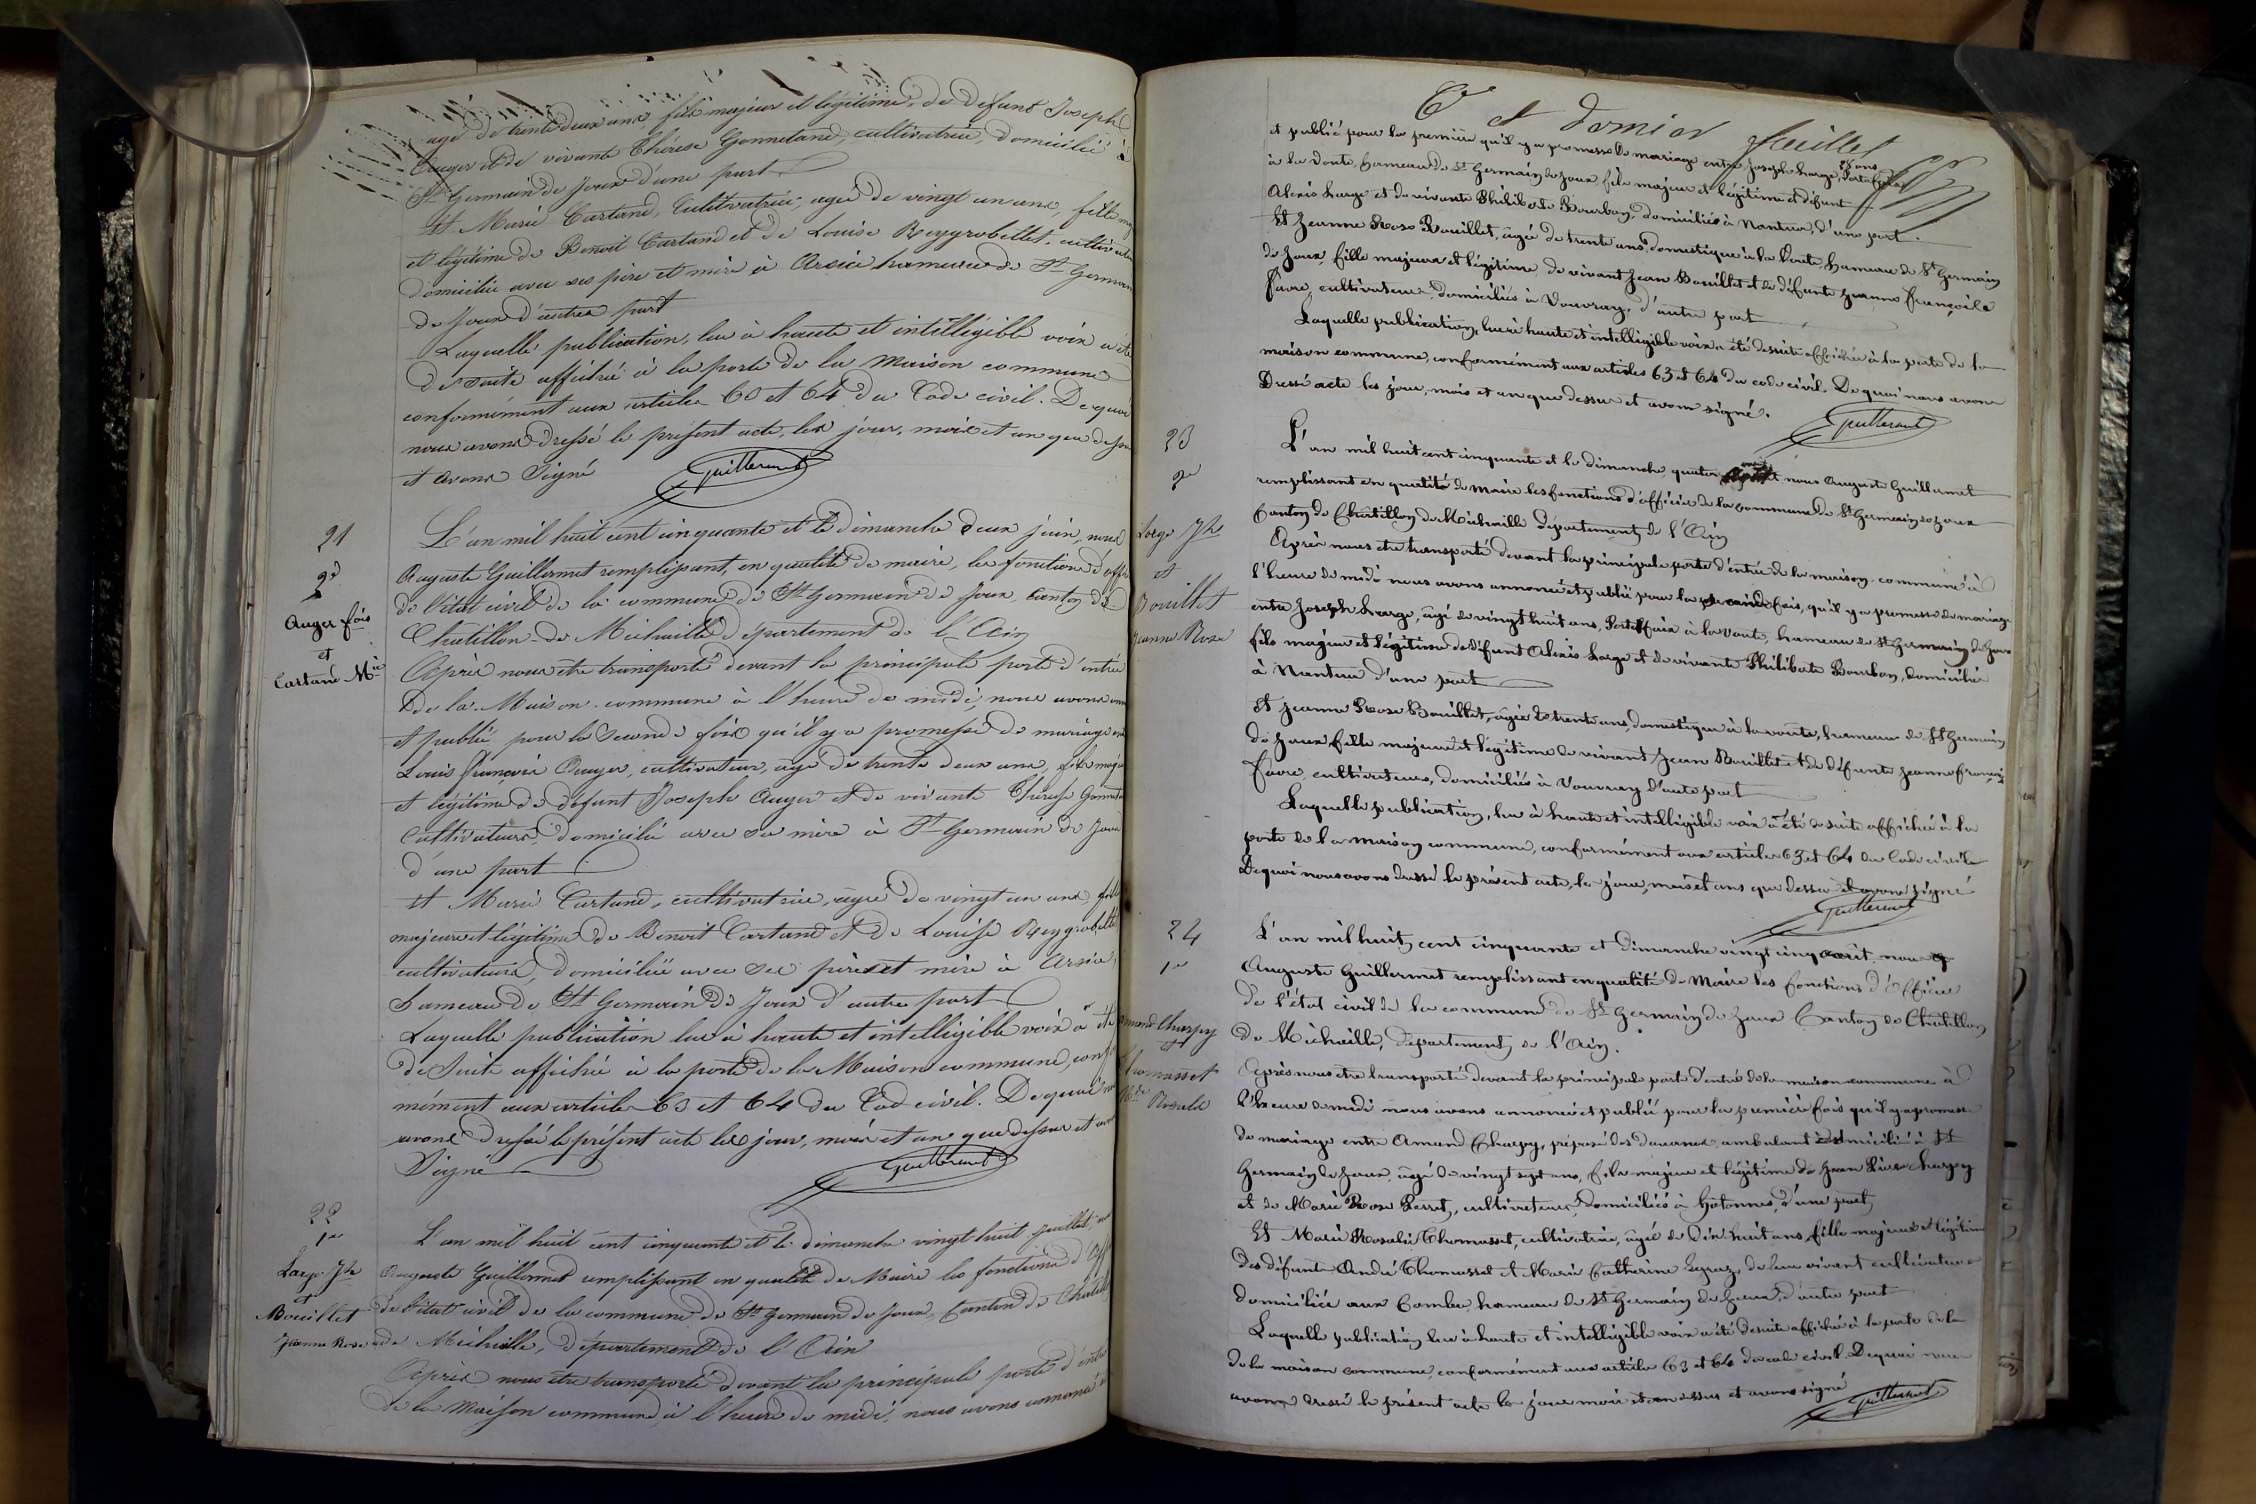 agé de trente deux ans, fils majeur et légitime, de defunt Joseph
Auger et de vivante Thérèse Gonnetand, cultivatrice, domicilié à
St Germain de Joux d'une part
Et Marie Cartand, Cultivatrice, agée de vingt un ans, fille
et légitime de Benoit Cartand et de Louise Reygrobellet, cultivateurs
domiciliée avec ses père et mère à Arsice hameau de St Germain
de Joux d'autre part
Laquelle publication, lue à haute et intelligible voix a été
de suite affichée à la porte de la Maison commune
conformément aux articles 63 et 64 du Code civil. De quoi
nous avons dressé le présent acte, les jour, mois et an que dessus
et avons Signé Guillermet
21
2e
Auger fois
et
Cartand Mie
L'an mil huit cent cinquante et le dimanche deux juin, nous
Auguste Guillermet remplissant, en qualité de maire, les fonctions d'officier
de l'état civil de la commune de St Germain de Joux, Canton de
Chatillon de Michaille département de l'Ain
Après nous être transporté devant la principale porte d'entrée
de la Maison commune à l'heure de midi, nous avons
et publié pour la Seconde fois qu'il y a promesse de mariage
Louis François Auger, cultivateur, agé de trente deux ans, fils majeur
et légitime de défunt Joseph Auger et de vivante Thérèse
Cultivateurs, domicilié avec sa mère à St Germain de Joux
d'une part
Et Marie Cartand, cultivatrice, agée de vingt un ans, fille
majeure et légitime de Benoit Cartand et de Louise Reygrobellet
cultivateurs, domiciliée avec ses père et mère à Arsice,
hameau de St Germain de Joux d'autre part
Laquelle publication lue à haute et intelligible voix a été
de Suite affichée à la porte de la Maison commune,
mément aux articles 63 et 64 du Code civil. De quoi
avons dressé le présent acte les jour, mois et an que dessus et
Signé Guillermet
22
1re
Large Jh
et
Bouillet
Jeanne Rose
L'an mil huit cent cinquante et le dimanche vingt huit juillet,
Auguste Guillermet remplissant en qualité de Maire les fonctions d'
de l'état civil de la commune de St Germain de Joux, Canton de
de Michaille, département de l'Ain
Après nous être transporté devant la principale porte d'entrée
de la Maison commune, à l'heure de midi, nous avons annoncé
et dernier feuillet
et publié pour la première qu'il y a promesse de mariage entre Joseph Large, 28 ans,
à la Voute, hameau de St Germain de Joux fils majeur et légitime et défunt
Alexis Large et de vivante Philiberte Bourbon, domiciliés à Nantua, d'une part.
Et Jeanne Rose Bouillet, âgée de trente ans, domestique à la Voute, hameau de St Germain
de Joux, fille majeure et légitime, de vivant Jean Bouillet et de défunte Jeanne Françoise
Favre, cultivateurs, domiciliés à Vouvray, d'autre part
Laquelle publication, lue à haute et intelligible voix a été de suite affichée à la porte de la
maison commune, conformément aux articles 63 et 64 du code civil. De quoi nous avons
Dressé acte les jour, mois et an que dessus et avons signé.
Guillermet
23
2e
Large Jh
et
Bouillet
Jeanne Rose
L'an mil huit cent cinquante et le dimanche, quatre août nous Auguste Guillermet
remplissant en qualité de maire les fonctions d'officier de la commune de St Germain de Joux
Canton de Châtillon de Michaille département de l'Ain
Après nous être transporté devant la principale porte d'entrée de la maison commune à
l'heure de midi nous avons annoncé et publié pour la seconde fois, qu'il y a promesse de mariage
entre Joseph Large, âgé de vingt huit ans, Portefaix à la Voute, hameau de St Germain de Joux
fils majeur et légitime de défunt Alexis Large et de vivante Philiberte Bourbon, domiciliés
à Nantua d'une part
Et Jeanne Rose Bouillet, âgée de trente ans, domestique à la voute, hameau de St Germain
de Joux, fille majeure et légitime de vivant Jean Bouillet et de défunte Jeanne Françoise
Favre, cultivateurs, domiciliés à Vouvray d'autre part
Laquelle publication, lue à haute et intelligible voix a été de suite affichée à la
porte de la maison commune, conformément aux articles 63 et 64 du Code civile
De quoi nous avons dressé le présent acte, le jour, mois et ans que dessus et avons signé
Guillermet
24
1re
Amand Charpy
et
Thomasset
Rosalie
L'an mil huit cent cinquante et dimanche vingt cinq août, nous
Auguste Guillermet remplissant en qualité de Maire les fonctions d'Officier
de l'état civil de la commune de St Germain de Joux Canton de Chatillon
de Michaille, département de l'Ain.
Après nous être transporté devant la principale porte d'entrée de la maison commune à
l'heure de midi nous avons annoncé et publié pour la première fois qu'il y a promesse
de mariage entre Amand Charpy, préposé des douanes ambulant domicilié à St
Germain de Joux, âgé de vingt sept ans, fils majeur et légitime de Jean Pierre Charpy
et de Marie Rose Perret, cultivateurs, domiciliés à Hotonnes, d'une part,
Et Marie Rosalie Thomasset, cultivatrice, âgée de dix huit ans, fille majeure et légitime
des défunts André Thomasset et Marie Catherine de leur vivant cultivateurs
domiciliée aux Combes, hameau de St Germain de Joux, d'autre part
Laquelle publication lue à haute et intelligible voix a été de suite affichée à la porte de la
de la maison commune, conformément aux articles 63 et 64 du code civil. De quoi nous
avons dressé le présent acte les jour mois et an dessus et avons signé
Guillermet